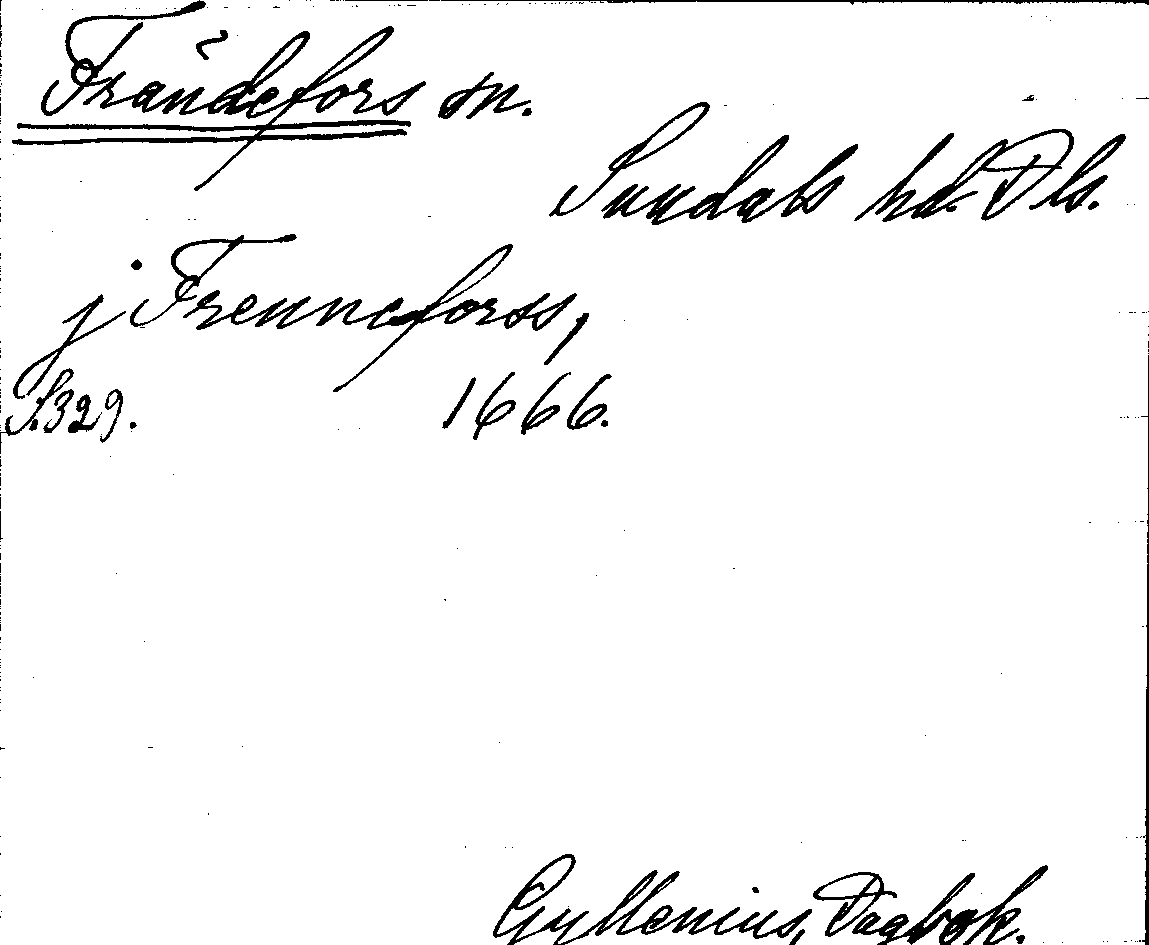 Frändefors sn.
Sundals hd. Dls.
j Frenneforss,
S. 329. 1666.
Gyllenius, Dagbok.